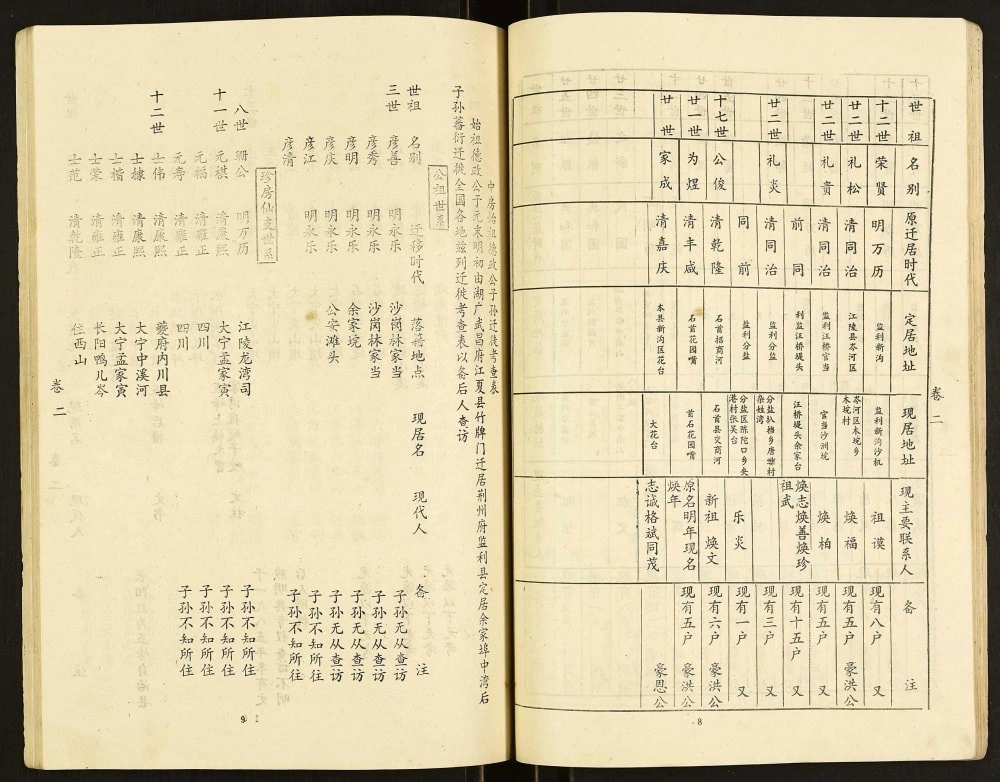 卷二
世祖 名别 原迁居时代 定居地址 现居地址 现主要联系人 备注
十二世 荣贤 明万历 监利新沟 监利新沟沙机 祖谟 现有八户 又
廿二世 礼松 清同治 江陵县岑河区 岑河区木垸乡木垸村 焕福 现有五户 豪洪公
廿二世 礼贵 清同治 监利汪桥官当 官当沙洲垸 焕柏 现有五户 又
前同 利监汪桥堤头 汪桥堤头余家台 焕志焕善焕珍祖武 现有十五户 又
廿二世 礼炎 清同治 监利分盐 分盐扒梢乡唐塘村杂姓湾 现有三户 又
同前 监利分盐 分盐区陈陀口乡央港村张吴台 乐炎 现有一户 又
十七世 公俊 清乾隆 石首招商河 石首县交商河 新祖焕文 现有六户 豪洪公
廿一世 为煜 清丰咸 石首花园嘴 首石花园嘴 原名明年现名焕年 现有五户 豪洪公
廿世 家成 清嘉庆 本县新沟区花台 大花台 志诚格斌同茂 豪恩公
8
中房始祖德政公子孙迁徙考查表
始祖德政公子元末明初由湖广武昌府江夏县竹牌门迁居荆州府监利县定居余家埠中湾后
子孙蕃衍迁徙全国各地兹列迁徙考查表以备后人查访
公祖世系
世祖 名别 迁移时代 落籍地点 现居名 现代人 备注
三世 彦喜 明永乐 沙岗林家当 子孙无从查访
彦秀 明永乐 沙岗林家当 子孙无从查访
彦明 明永乐 余家垸 子孙无从查访
彦庆 明永乐 公安滩头 子孙无从查访
彦江 明永乐 子孙不知所住
彦清 子孙不知所住
珍房仙支世系
八世 珊公 明万历 江陵龙湾司 子孙不知所住
十一世 元祺 清康熙 大宁孟家寅 子孙不知所住
元福 清雍正 四川 子孙不知所住
元寿 清雍正 四川 子孙不知所住
十二世 士伟 清康熙 夔府内川县
士棣 清康熙 大宁中溪河
士楷 清雍正 大宁孟家寅
士荣 清雍正 长阳鸭儿岑
士范 清乾隆 住西山
卷二
9